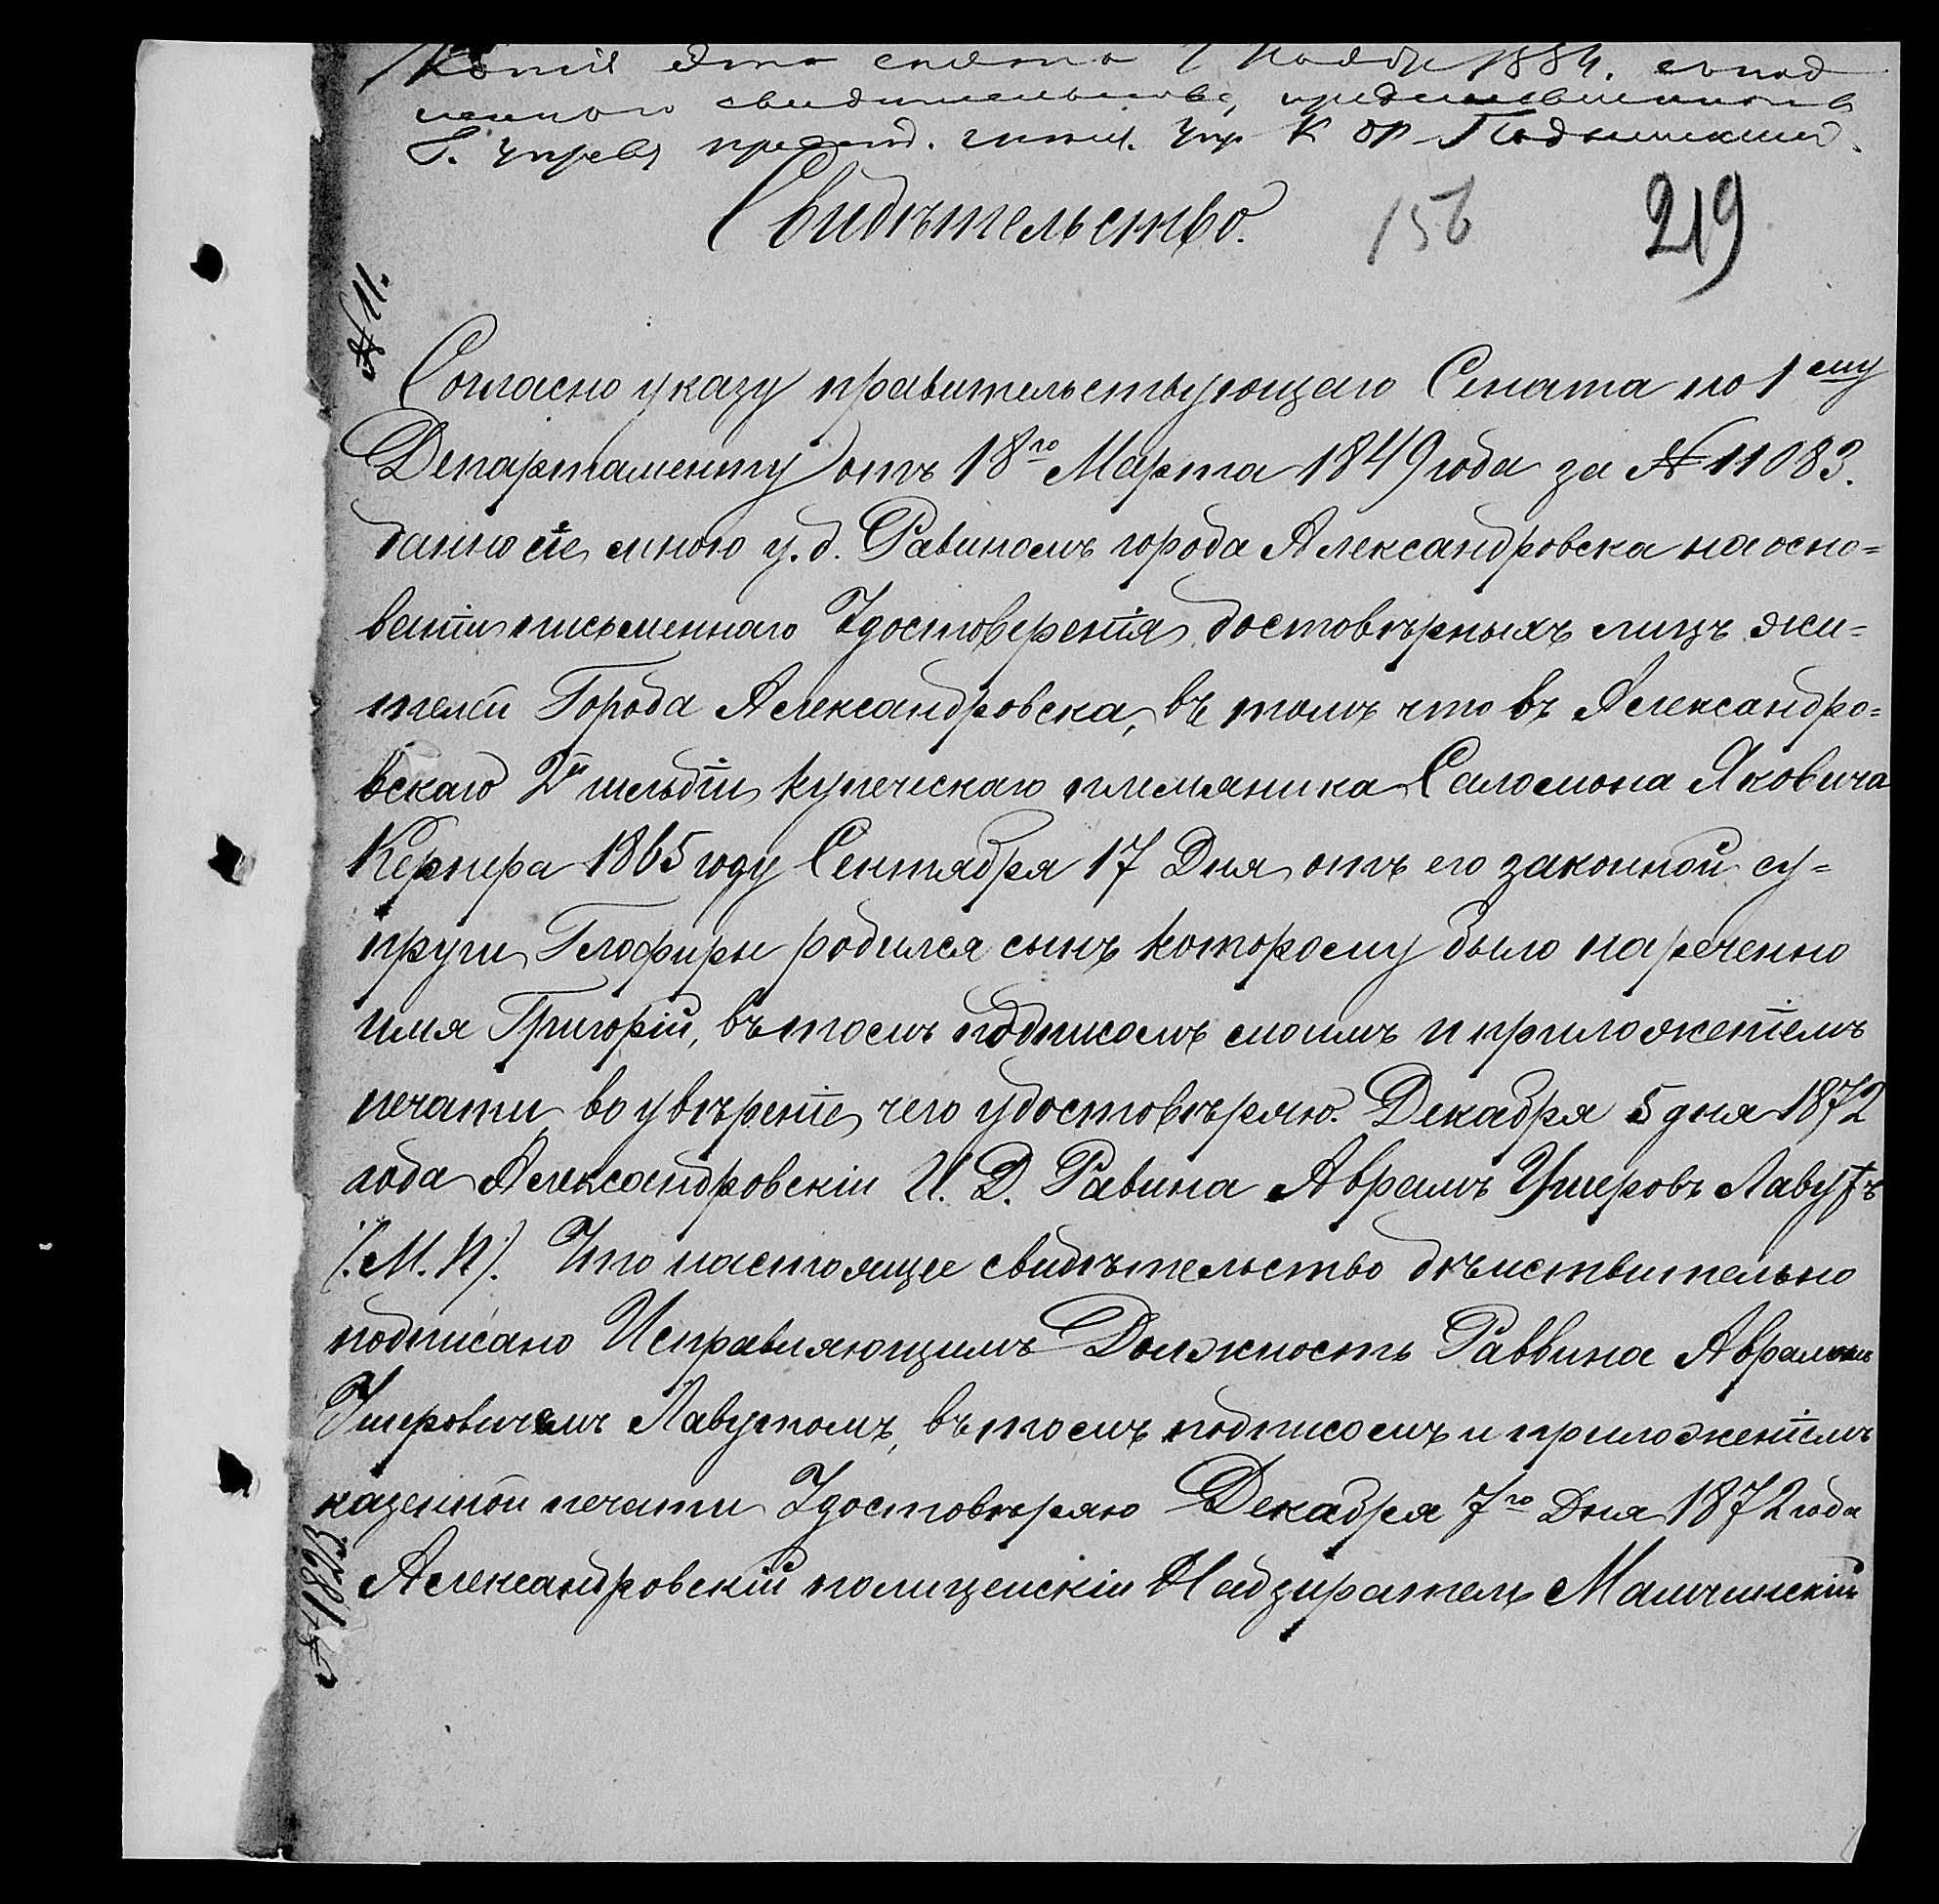 Копія эта снята 7 Ноябр 1884. съ под
леннаго свидетельства,
Г. предсѣд.
Свидѣтельство.
156
219
№ 11.
Согласно указу правительствующаго Сената по 1ему
Департаменту отъ 18го Марта 1849 года за № 11083.
данно сіе мною у. д. Равиномъ города Александровска на осно=
ваніи письменнаго Удостоверенія достовѣрныхъ лицъ жи=
телей Города Александровска, въ томъ что въ Александро=
вскаго 2й гильдіи купеческаго племяника Саломона Яковича
Кернера 1865 году Сентября 17 Дня отъ его законной су=
пруги Глофиры родился сынъ которому было нареченно
имя Григорій, въ томъ подписомъ моимъ и приложеніемъ
печати во увѣреніе чего удостовѣряю. Декабря 5 дня 1872
года Александровскій И. Д. Равина Аврамъ Ушеровъ Лавутъ
(М. П). Что настоящее свидѣтельство дѣйствительно
подписано Исправляющимъ Должность Раввина Аврамомъ
Ушеровичемъ Лавутомъ, въ томъ подписомъ и приложеніемъ
казенной печати Удостовѣряю Декабря 7го Дня 1872 года
Александровскій полицейскій Надзиратель